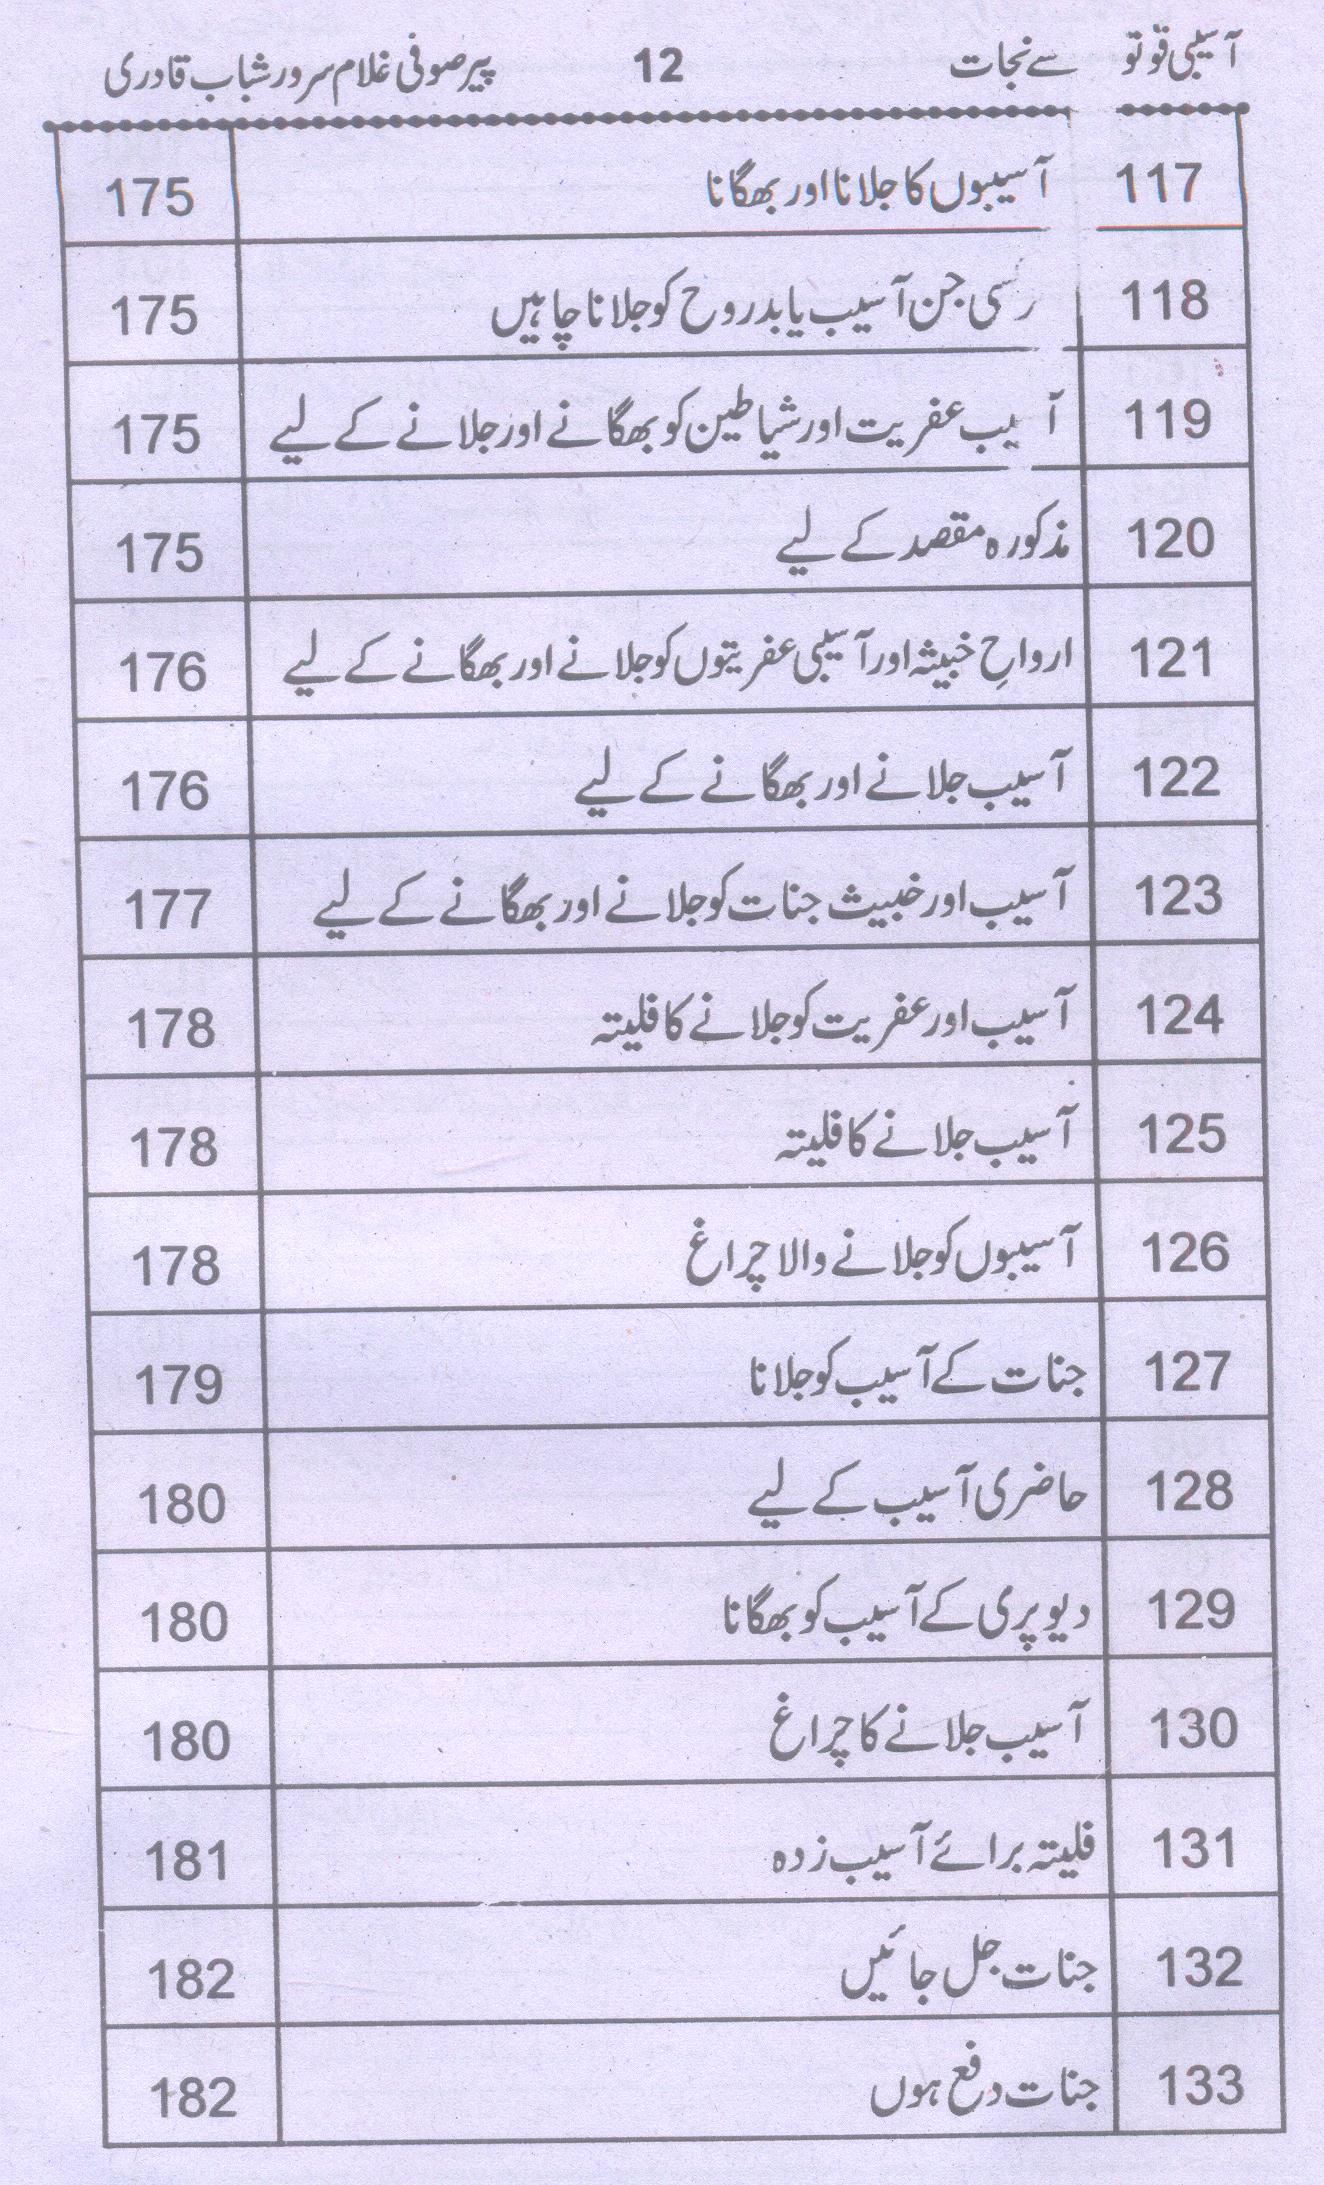 آسیبی قوتو سے نجات 12 پیر صوفی غلام سرور شباب قادری
117 آسیبوں کا جلانا اور بھگانا 175
118 جن آسیب یا بدروح کو جلانا چاہیں 175
119 آسیب عفریت اور شیاطین کو بھگانے اور جلانے کے لیے 175
120 مذکورہ مقصد کے لیے 175
121 ارواحِ خبیثہ اور آسیبی عفریتوں کو جلانے اور بھگانے کے لیے 176
122 آسیب جلانے اور بھگانے کے لیے 176
123 آسیب اور خبیث جنات کو جلانے اور بھگانے کے لیے 177
124 آسیب اور عفریت کو جلانے کا فلیتہ 178
125 آسیب جلانے کا فلیتہ 178
126 آسیبوں کو جلانے والا چراغ 178
127 جنات کے آسیب کو جلانا 179
128 حاضری آسیب کے لیے 180
129 دیو پری کے آسیب کو بھگانا 180
130 آسیب جلانے کا چراغ 180
131 فلیتہ برائے آسیب زدہ 181
132 جنات جل جائیں 182
133 جنات دفع ہوں 182